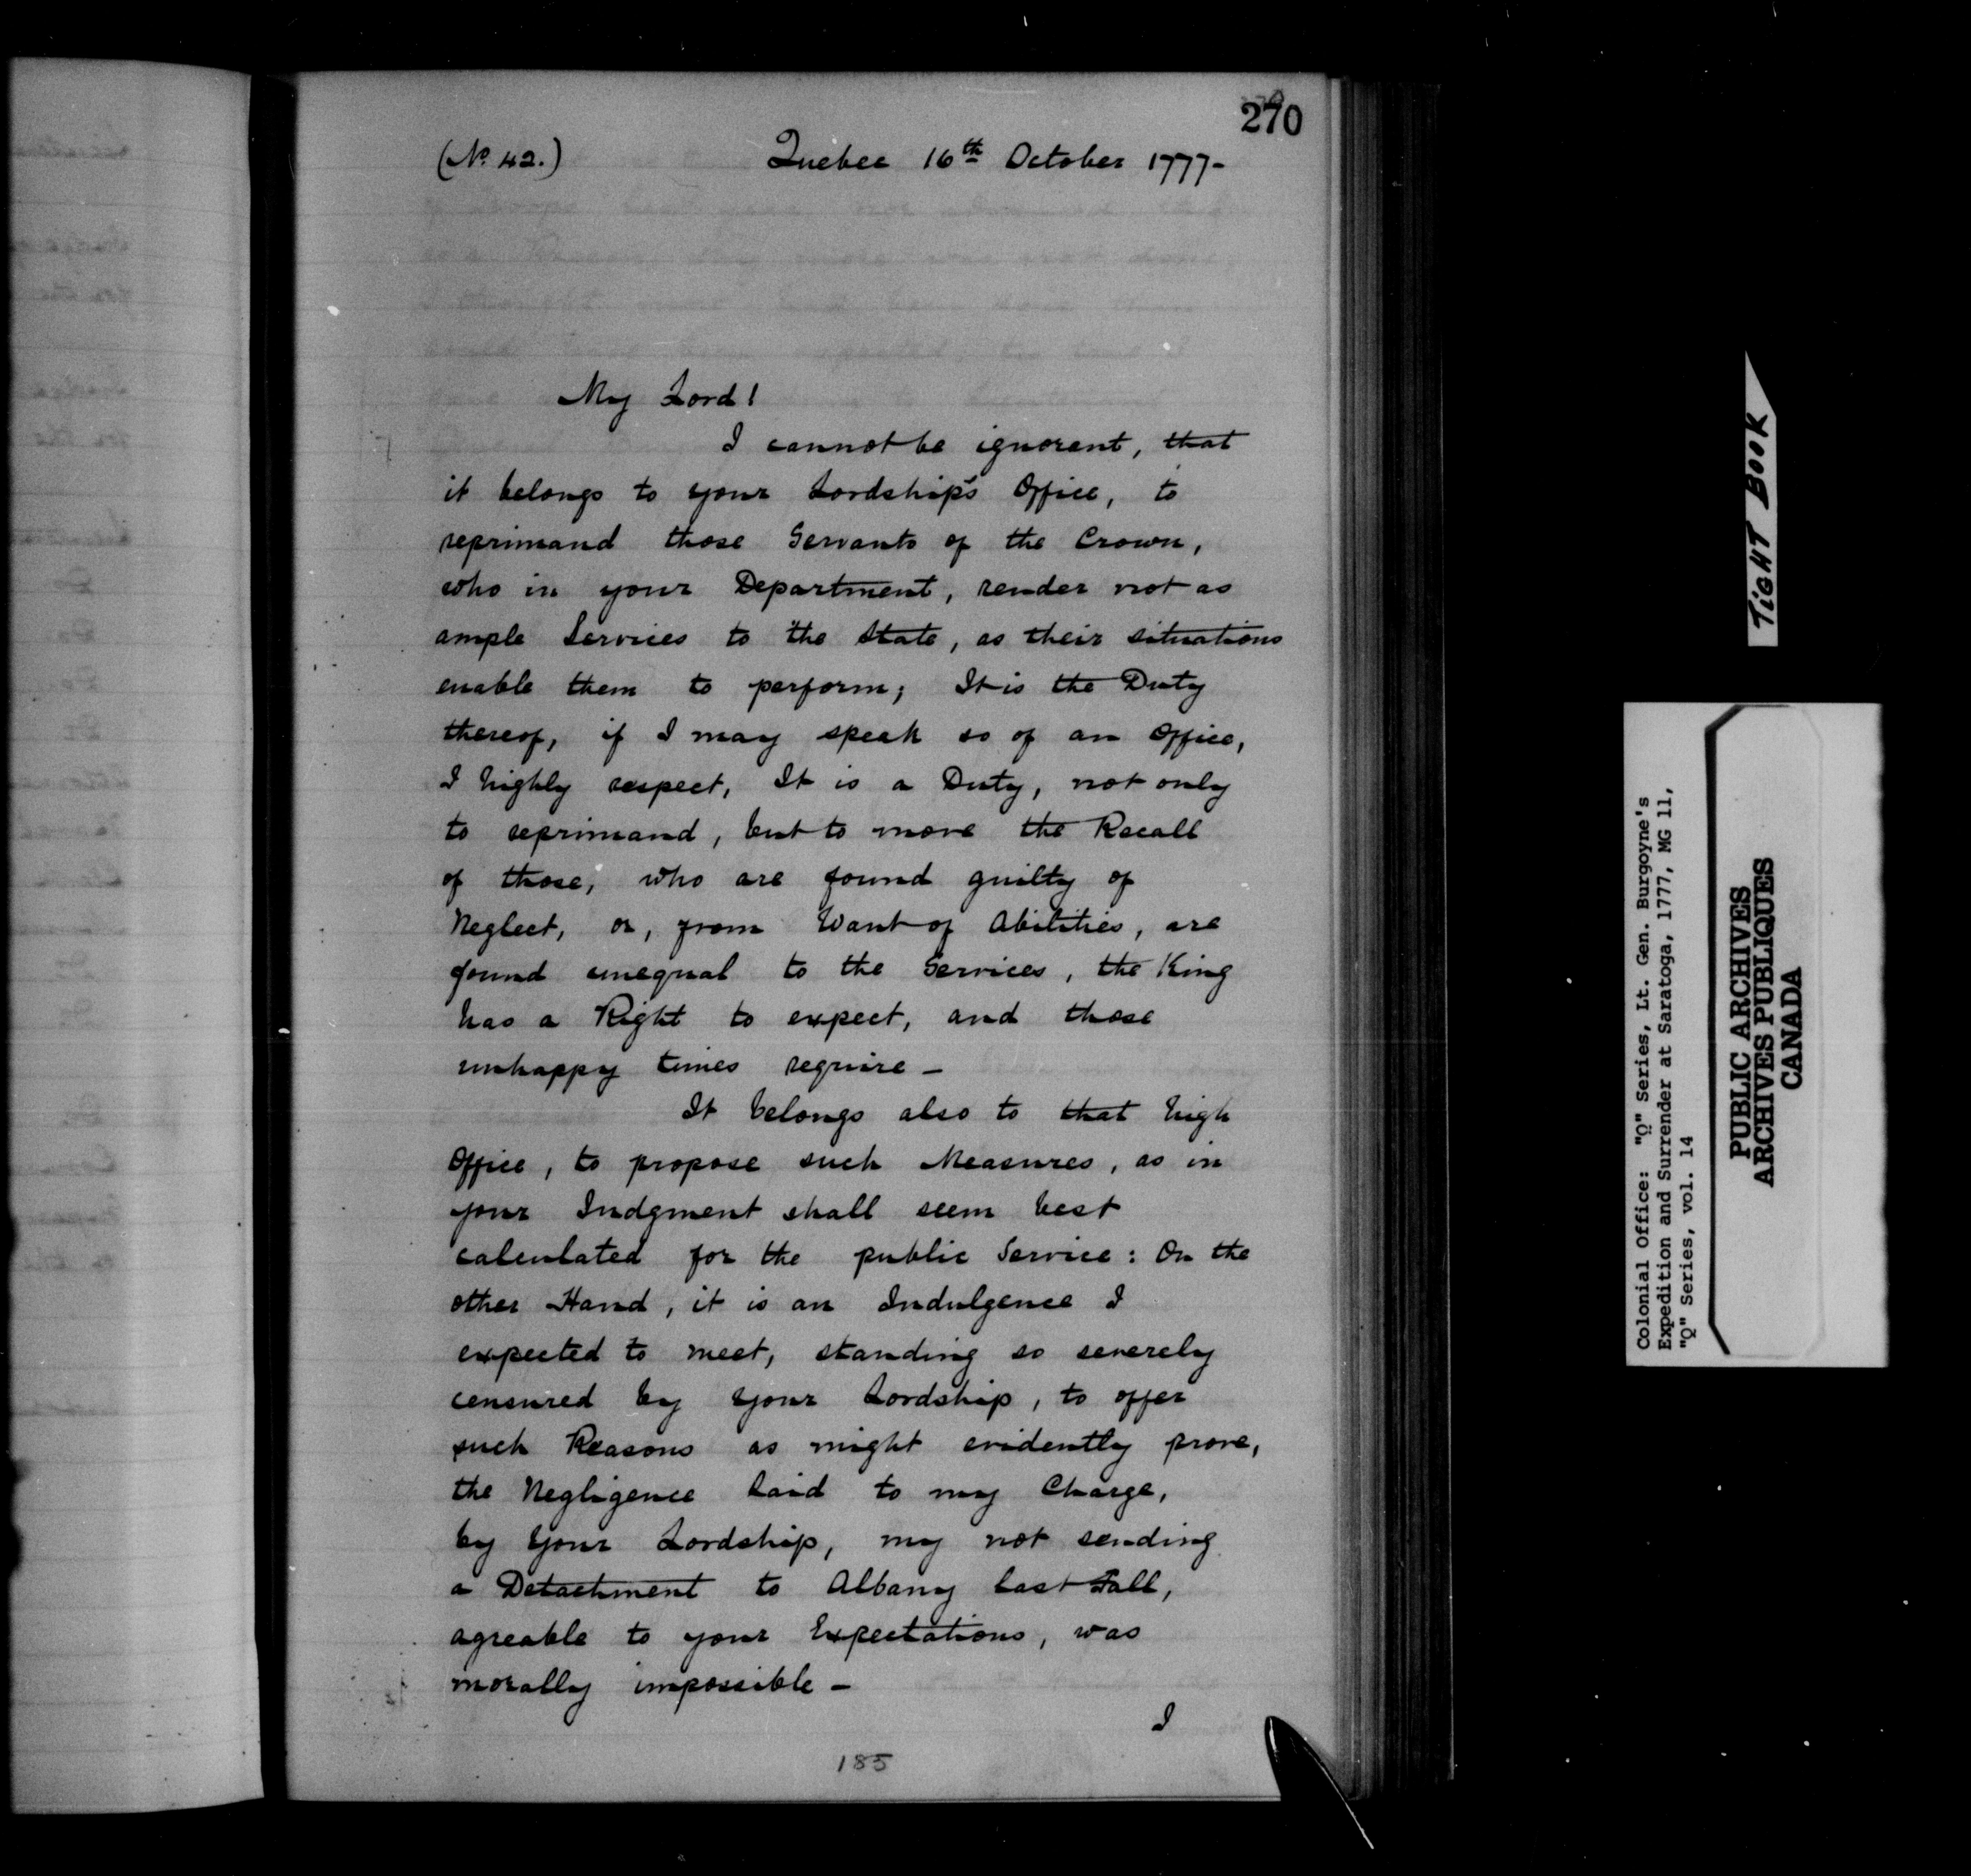 270
(No. 42.) Quebec 16th October 1777-
My Lord!
I cannot be ignorent, that
it belongs to your Lordship's Office, to
reprimand those Servants of the Crown,
who in your Department, render not as
ample Services to the State, as their situations
enable them to perform; It is the Duty
thereof, if I may speak so of an Office,
I highly respect, It is a Duty, not only
to reprimand, but to move the Recall
of those, who are found guilty of
Neglect, or, from Want of Abilities, are
found unequal to the Services, the King
has a Right to expect, and these
unhappy times require -
It belongs also to that high
Office, to propose such Measures, as in
your Judgment shall seem best
calculated for the public Service: On the
other Hand, it is an Indulgence I
expected to meet, standing so severely
censured by your Lordship, to offer
such Reasons as might evidently prove,
the Negligence laid to my Charge,
by your Lordship, my not sending
a Detachment to Albany last Fall,
agreable to your Expectations, was
morally impossible -
I
185
TIGHT BOOK
Colonial Office: "Q" Series, Lt. Gen. Burgoyne's
Expedition and Surrender at Saratoga, 1777, MG 11,
"Q" Series, vol. 14
PUBLIC ARCHIVES
ARCHIVES PUBLIQUES
CANADA